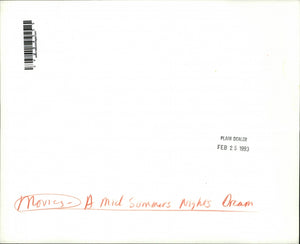 PLAIN DEALER
FEB 26 1993
Movies - A Mid Summers Nights Dream